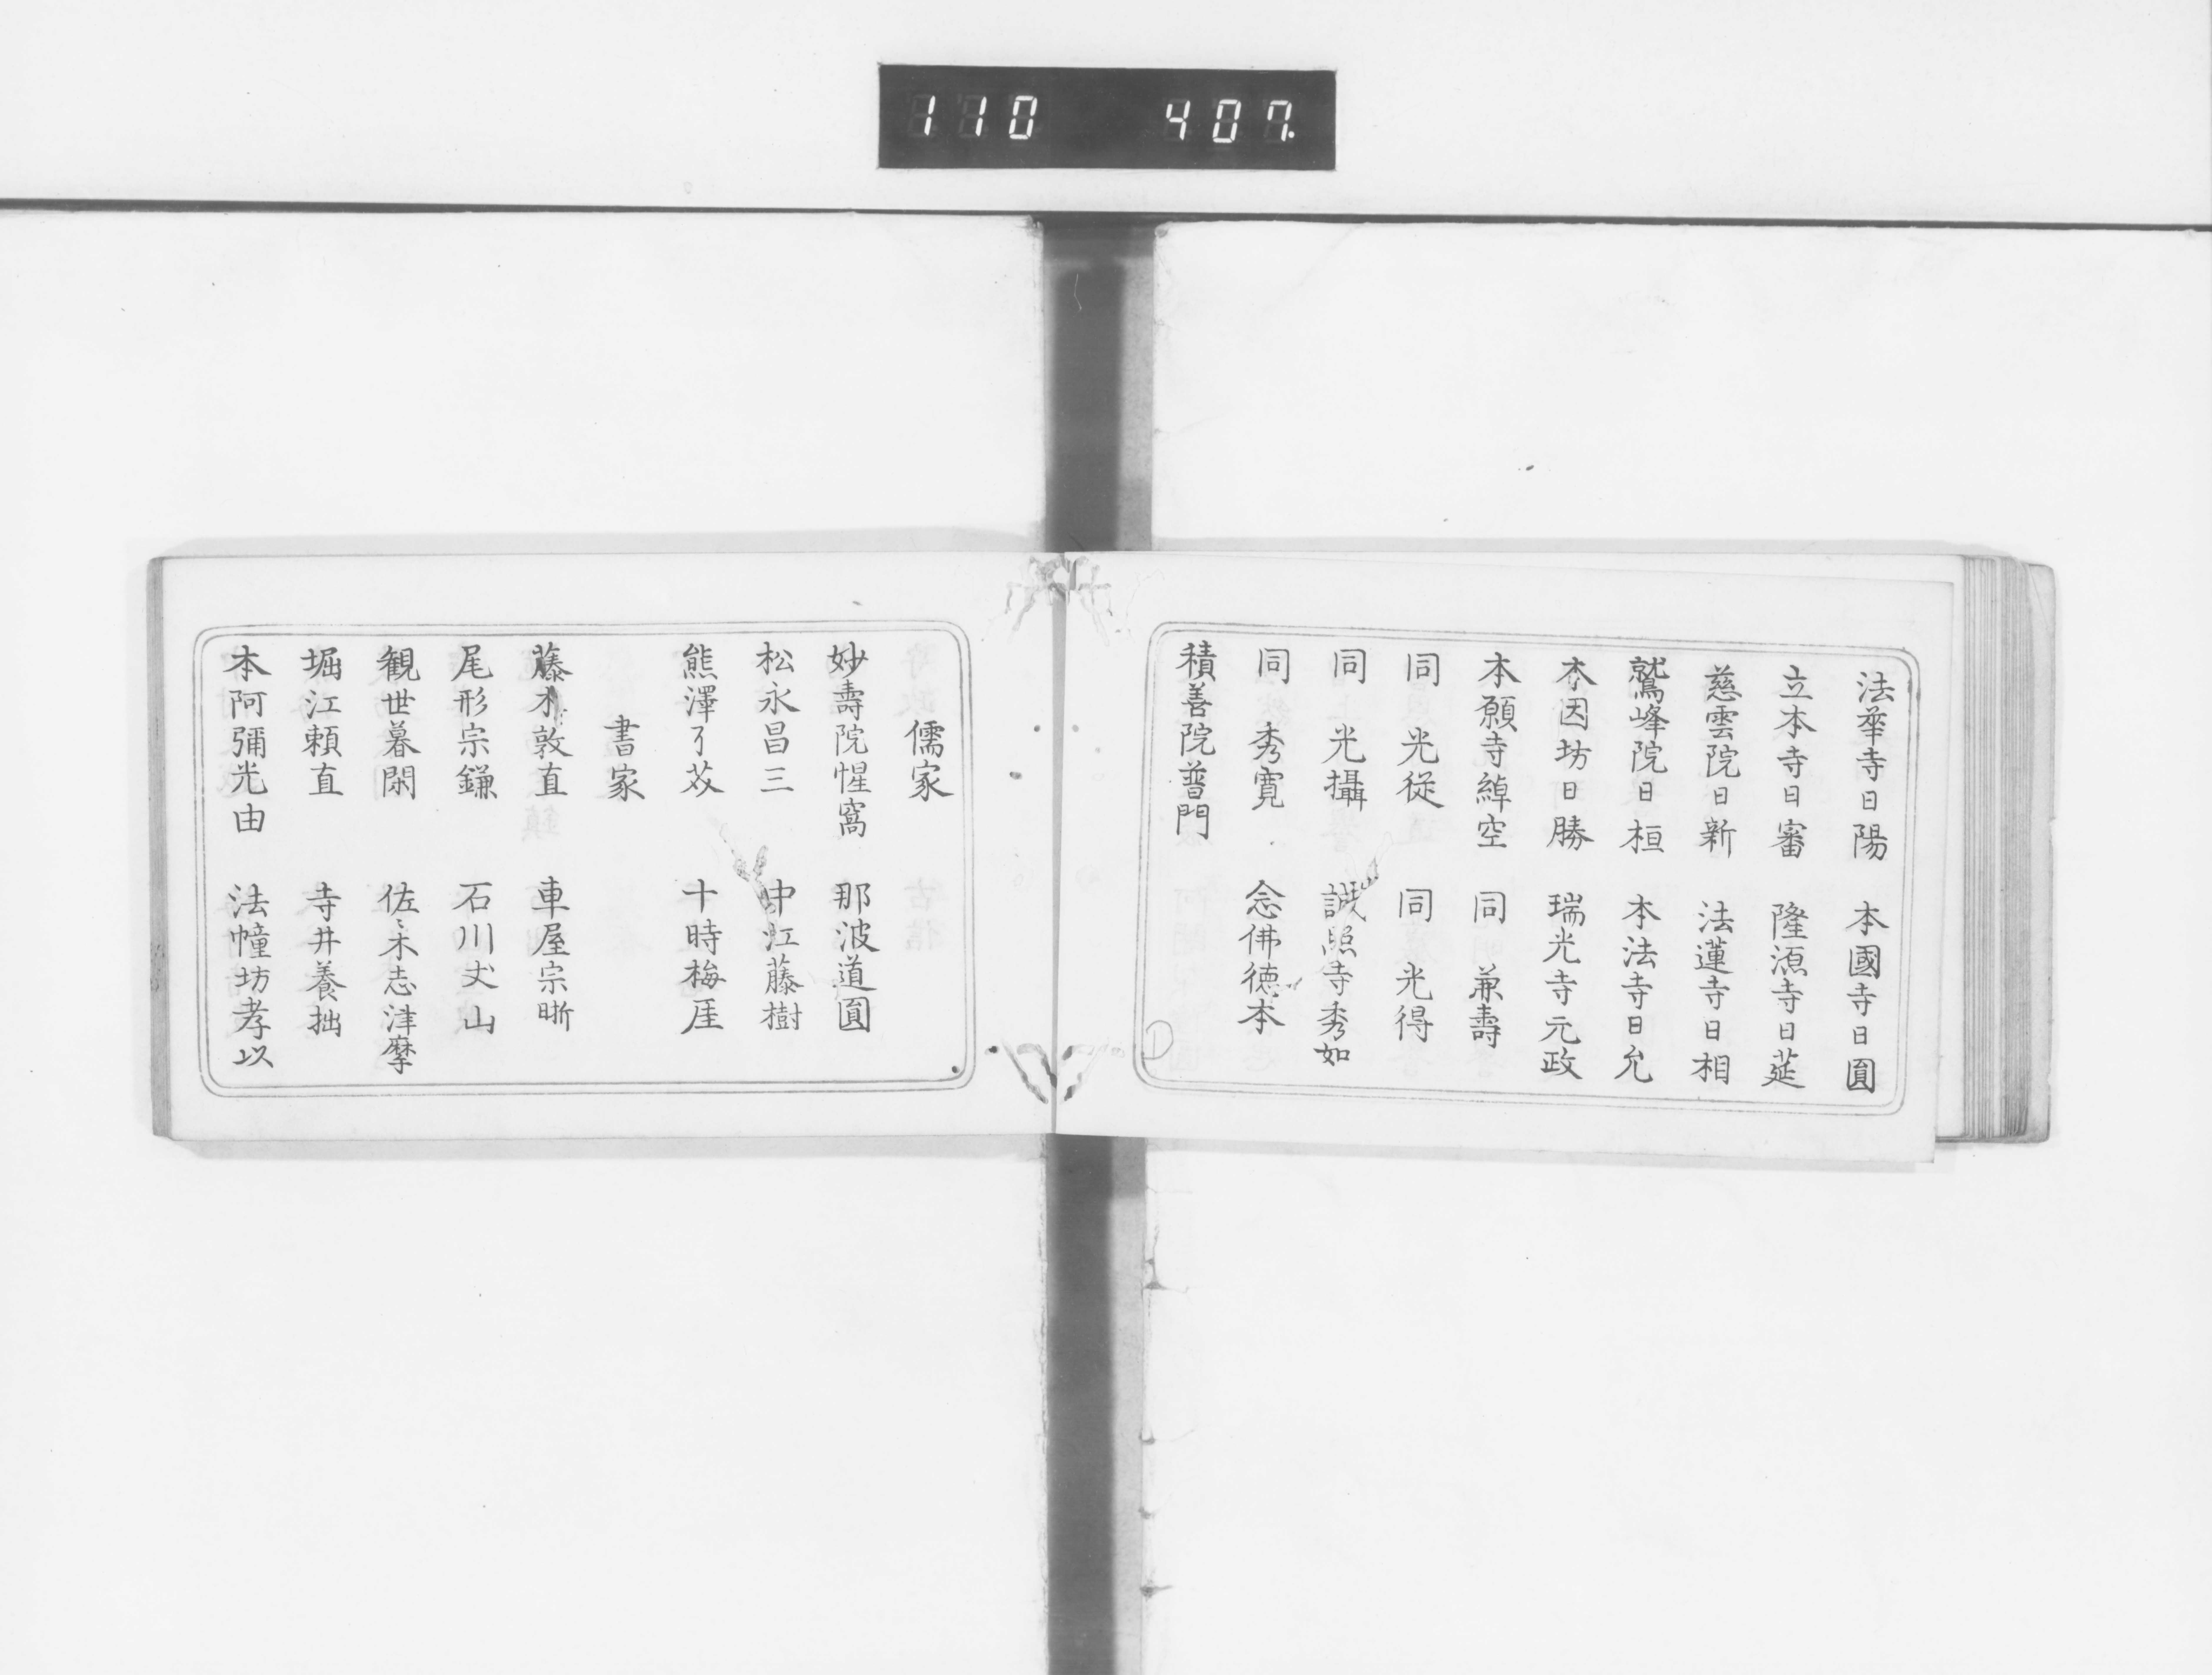 110 407.
法華寺日陽 本國寺日圓
立本寺日審 隆源寺日莚
慈雲院日新 法蓮寺日相
鷲峰院日桓 本法寺日允
本因坊日勝 瑞光寺元政
本願寺綽空 同 兼壽
同 光従 同 光得
同 光攝 誠照寺秀如
同 秀寛 念佛徳本
積善院普門
儒家
妙壽院惺窩 那波道圓
松永昌三 中江藤樹
熊澤了芥 十時梅厓
書家
藤木敦直 車屋宗晣
尾形宗鎌 石川丈山
観世暮閑 佐々木志津摩
堀江頼直 寺井養拙
本阿彌光由 法幢坊孝以